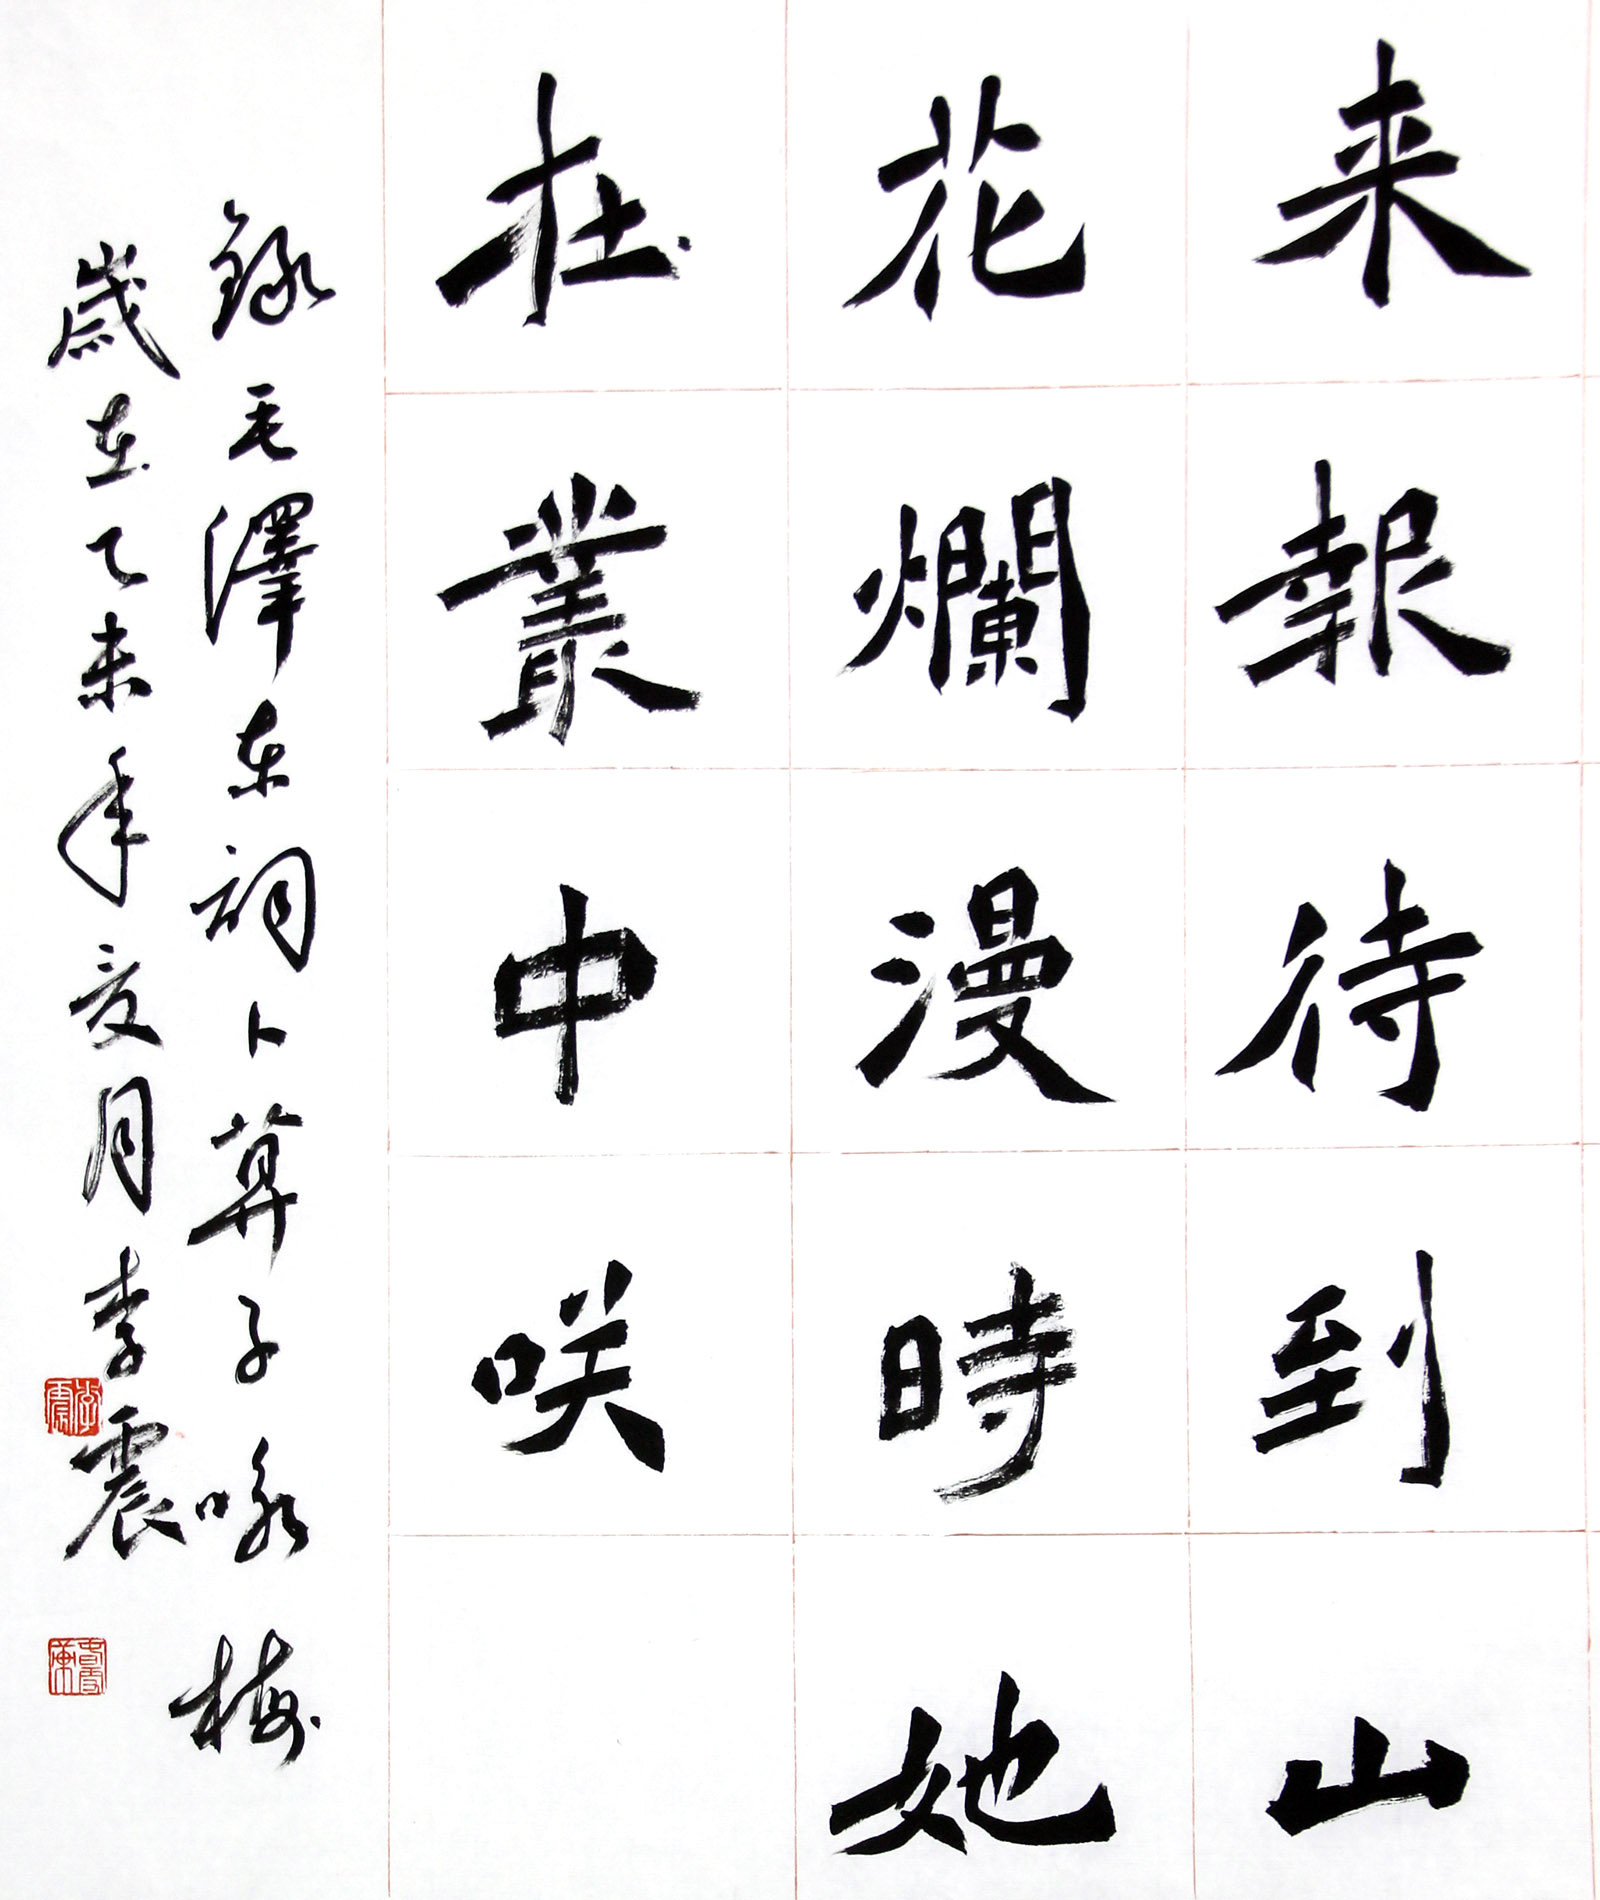 来報待到山
花爛漫時她
在叢中咲
録毛澤东詞卜算子咏梅
歲在乙未年夏月李震